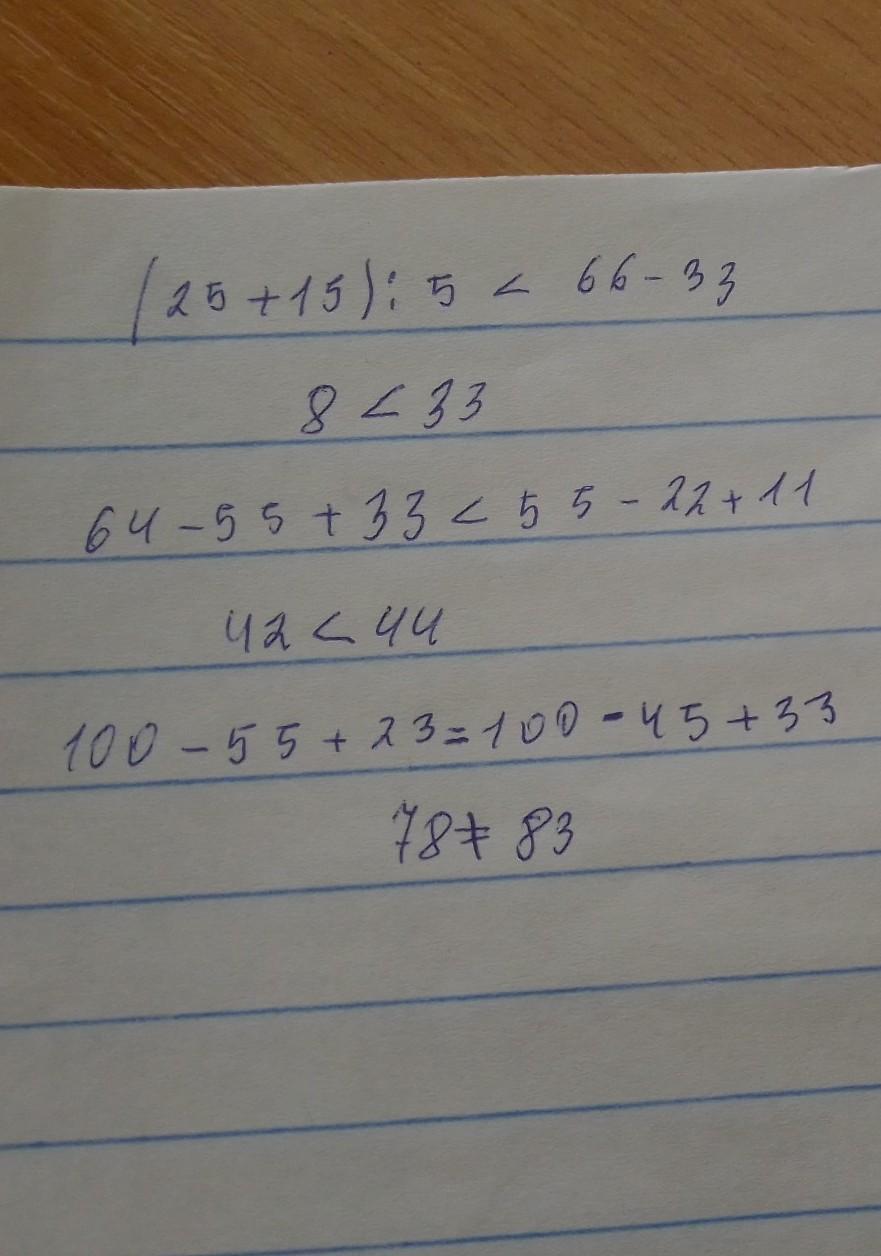 (25+15):5 < 66-33
8 < 33
64-55+33 < 55-22+11
42 < 44
100-55+23=100-45+33
78≠83